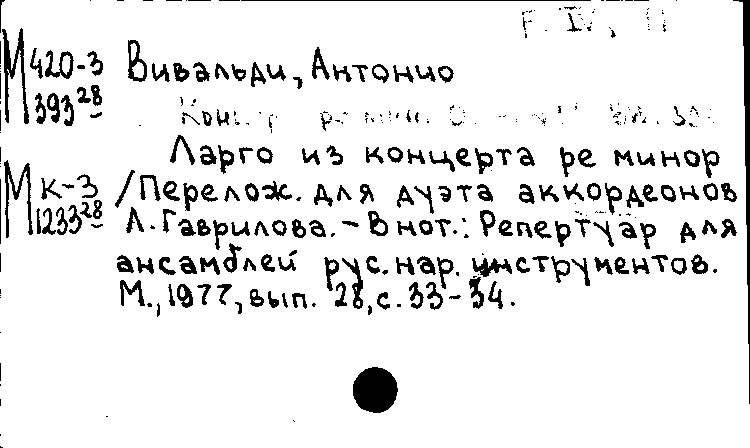 F. IV, 11
М 420-3 Вивальди, Антонио
393 28
Ларго из концерта ре минор
М К-3 /Перелож. для дуэта аккордеонов
1233 28 Л. Гаврилова. – В нот.: Репертуар для
ансамблей рус. нар. инструментов.
М., 1977, вып. 28, с. 33-34.